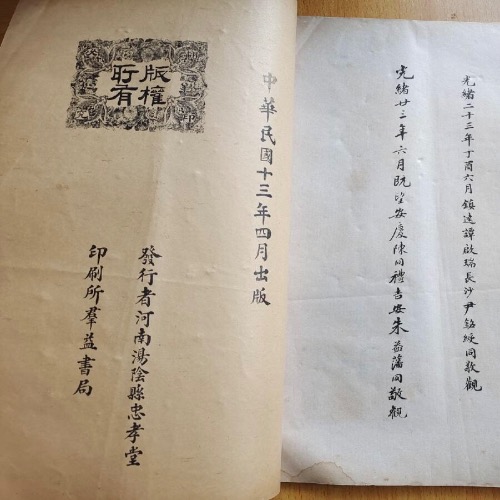 光緒二十三年丁酉六月鎮遠譚啟瑞長沙尹銘綬同敬觀
光緒廿三年六月既望安慶陳同禮吉安朱益藩同敬觀
中華民國十三年四月出版
版權
所有
發行者河南湯陰縣忠孝堂
印刷所羣益書局